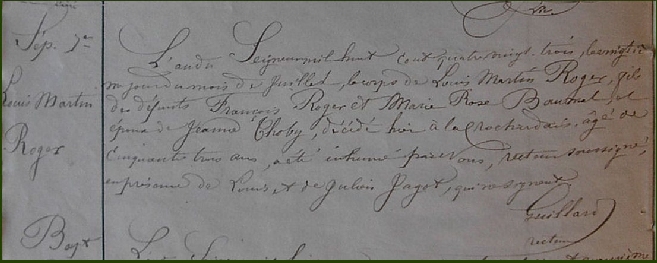 Sép. 7me
Louis Martin
Roger
L'an du Seigneur mil huit cent quatre vingt trois, le vingt six
me jour du mois de Juillet, le corps de Louis Martin Roger, fils
des défunts François Roger et Marie Rose Baumel, et
époux de Jeanne Choby, décédé hier à la Rochardais, âgé de
cinquante trois ans, a été inhumé par nous, recteur soussigné,
en présence de Louis, et de Julien Jagot, qui ne signent
Guillard
recteur
Bapt